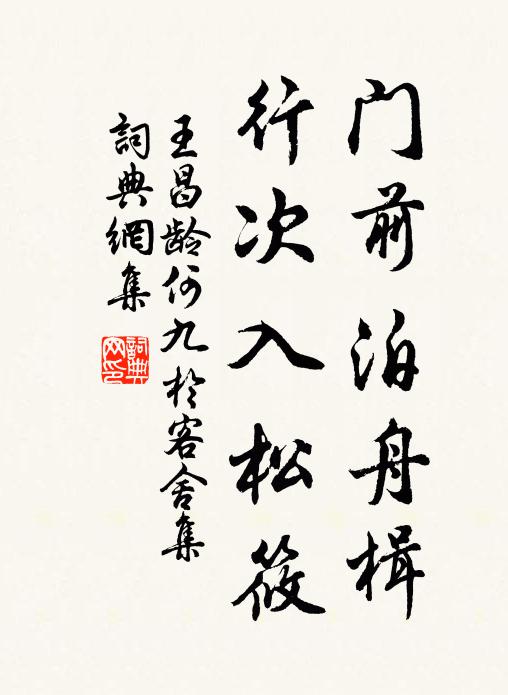 门前泊舟楫
行次入松筱
王昌龄何九於客舍集
詞典網集
詞典网印